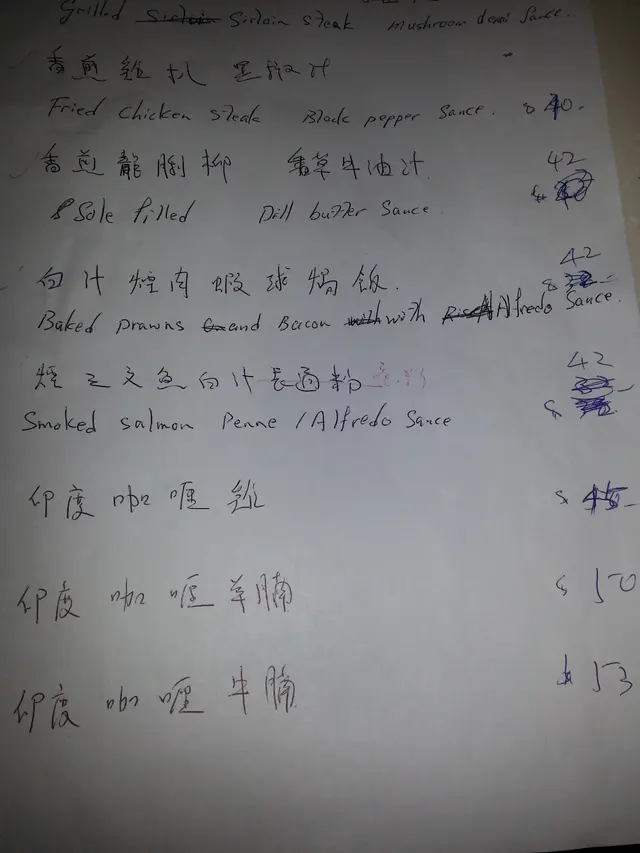 Grilled Sirloin Steak Mushroom demi Sauce.
香煎雞扒 黑椒汁
Fried Chicken Steak Black pepper Sauce. $ 40.
香煎龍脷柳 香草牛油汁 42
Sole filled Dill butter Sauce $
白汁煙肉蝦球焗飯. 42
Baked prawns and Bacon with Alfredo Sauce. $
煙三文魚白汁長通粉 意粉 42
Smoked salmon Penne / Alfredo Sauce $
印度咖喱雞 $ 45-
印度咖喱羊腩 $ 50
印度咖喱牛腩 $ 53